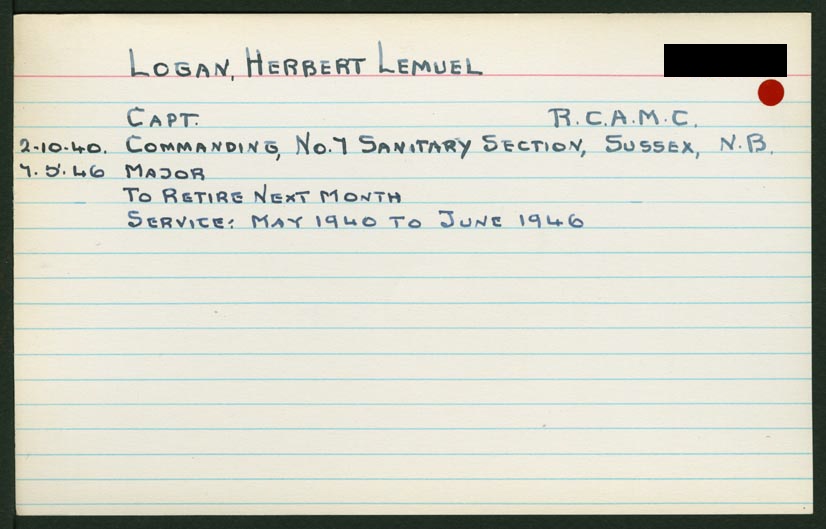 LOGAN, HERBERT LEMUEL
CAPT. R.C.A.M.C.
2-10-40. COMMANDING, No.7 SANITARY SECTION, SUSSEX, N.B.
7.5.46 MAJOR
TO RETIRE NEXT MONTH
SERVICE: MAY 1940 TO JUNE 1946